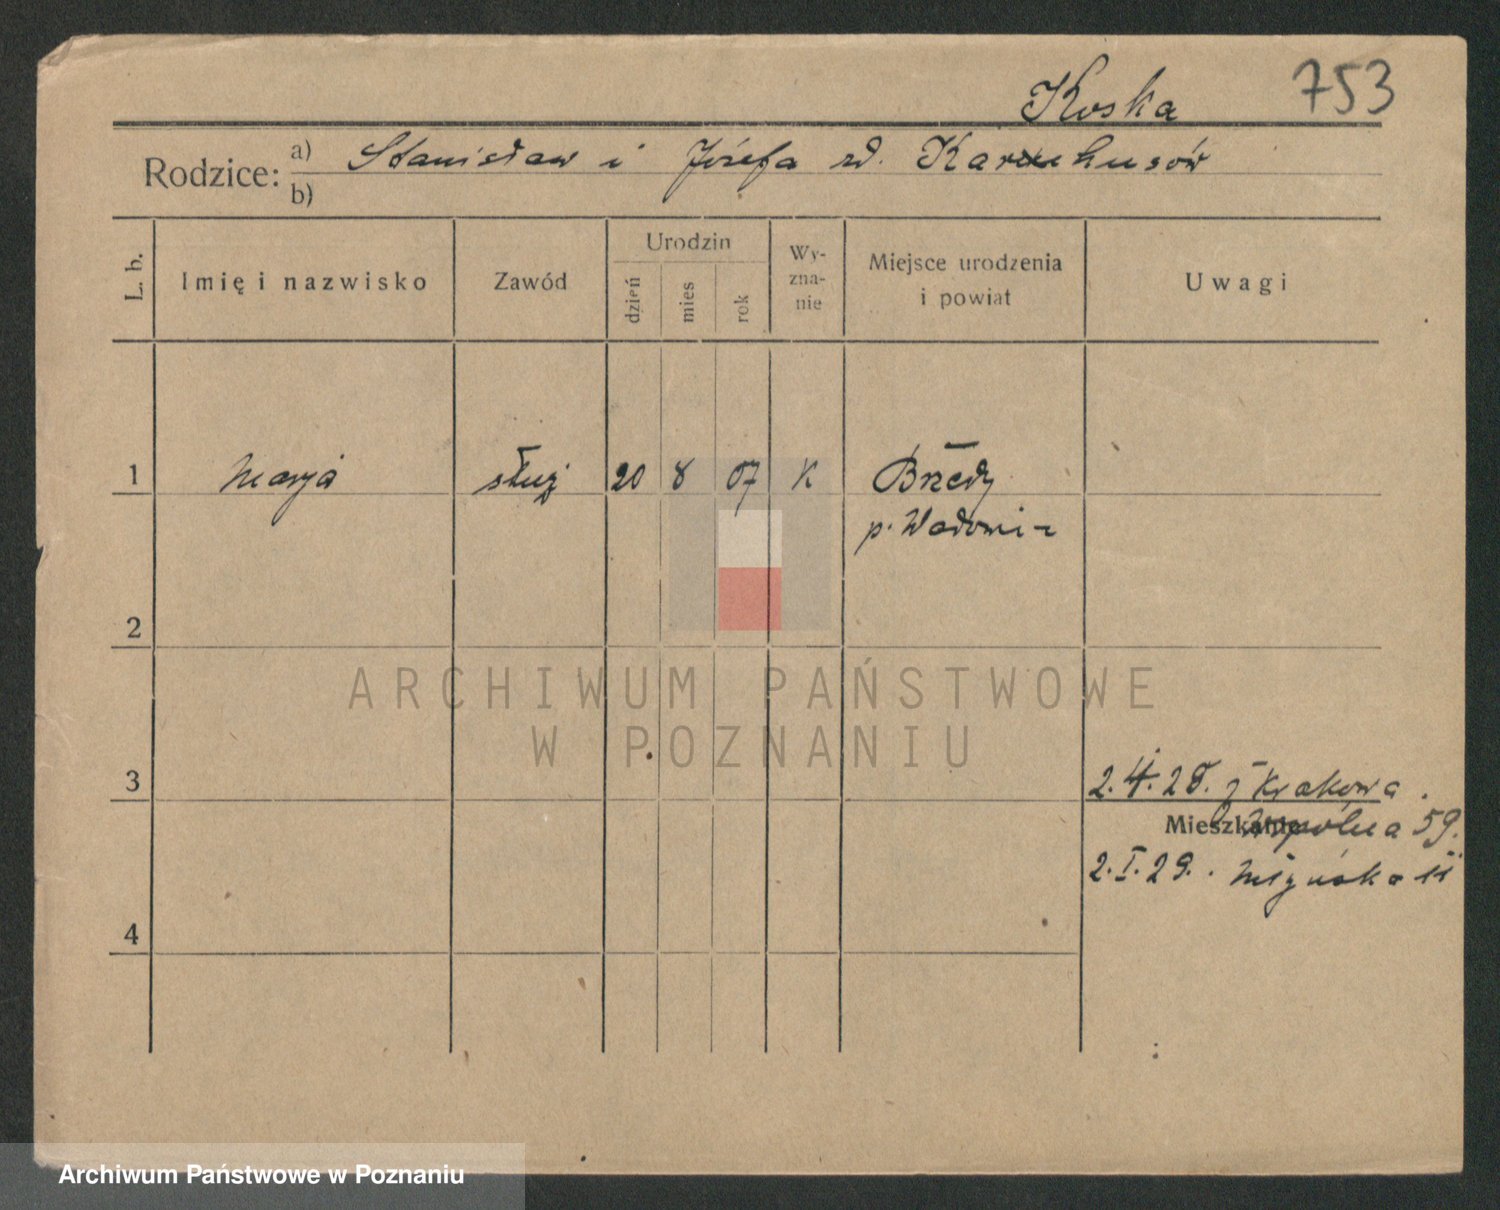 Koska 753
Rodzice: a) Stanisław i Józefa zd.
b)
L. b. Imię i nazwisko Zawód Urodzin dzień mies rok Wy-zna-nie Miejsce urodzenia i powiat Uwagi
1 Marja służ 20 8 07 K
p.
2
ARCHIWUM PAŃSTWOWE
W POZNANIU
3 2.4.28. z Krakowa.
Mieszkanie: 59.
2.I.29. 11
4
Archiwum Państwowe w Poznaniu